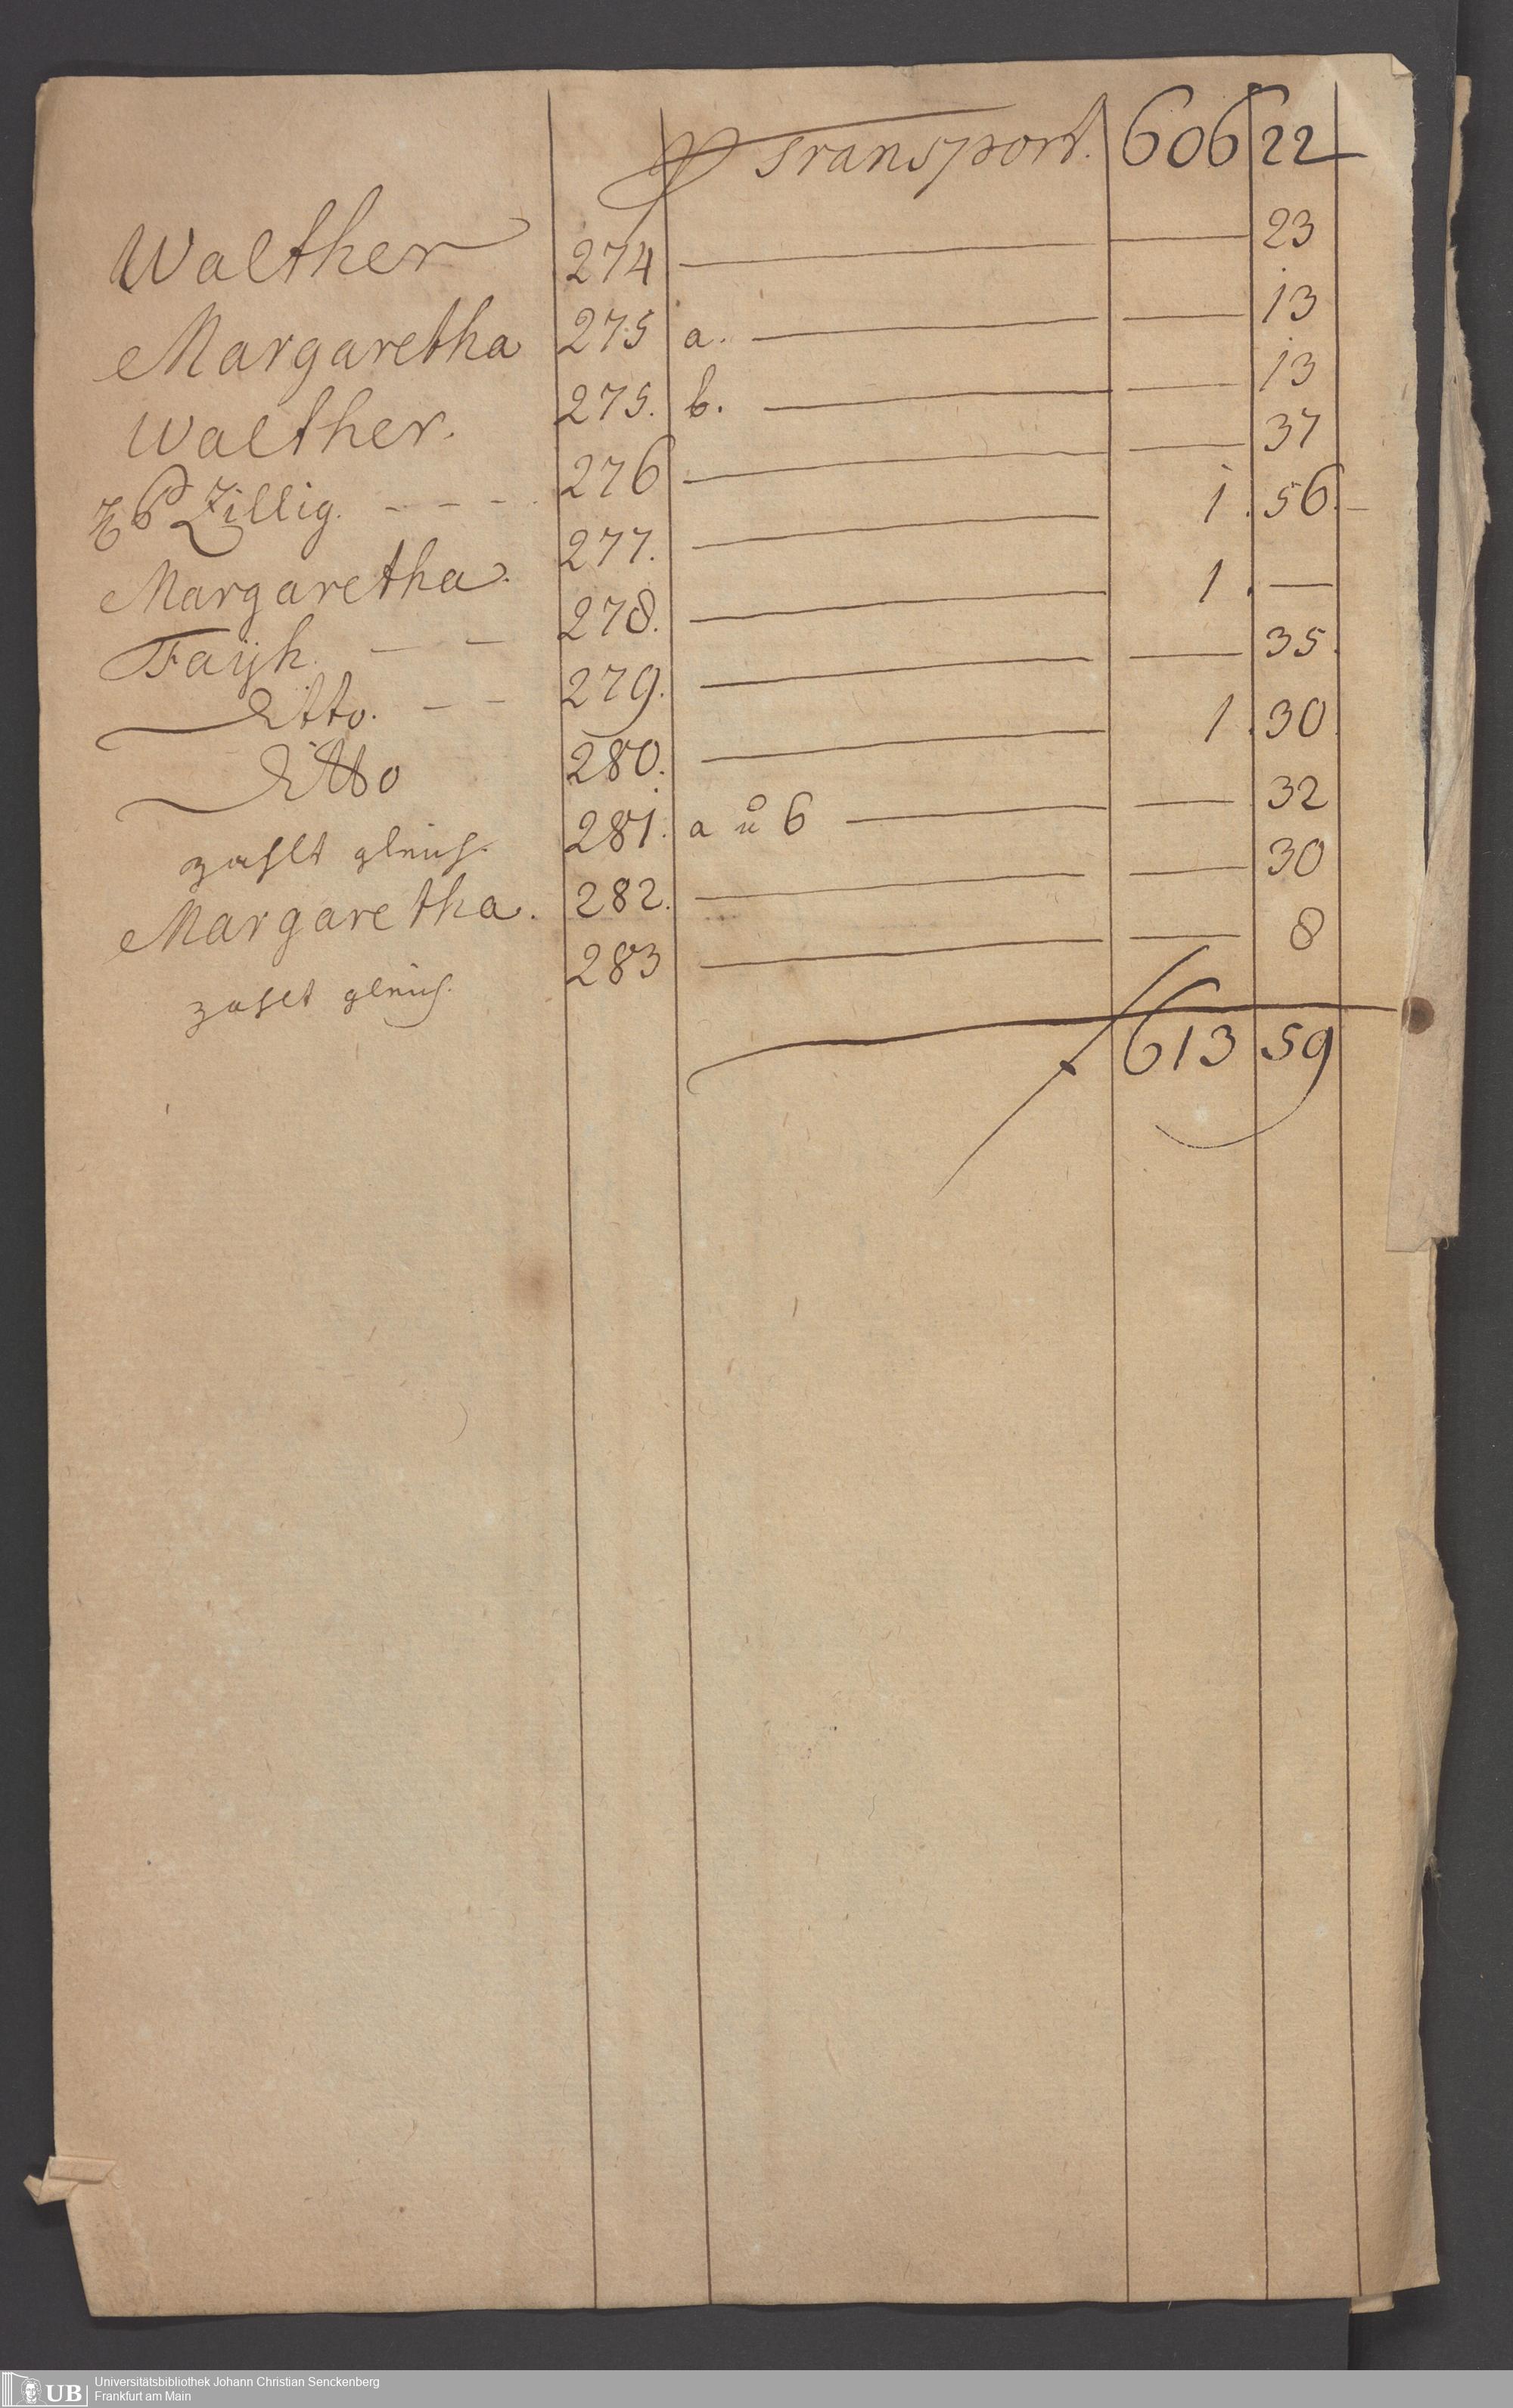 Transport. 606 22
Walther 274 23
Margaretha 275 a. 13
Walther. 275. b. 13
Zillig. 276 37
Margaretha. 277. 1. 56.
Fayh. 278. 1. —
Ditto. 279. 35.
Ditto 280. 1. 30
zahlt gleich. 281. a u 6 32
Margaretha. 282. 30
zahlt gleich. 283 8
613 59
UB
Universitätsbibliothek Johann Christian Senckenberg
Frankfurt am Main